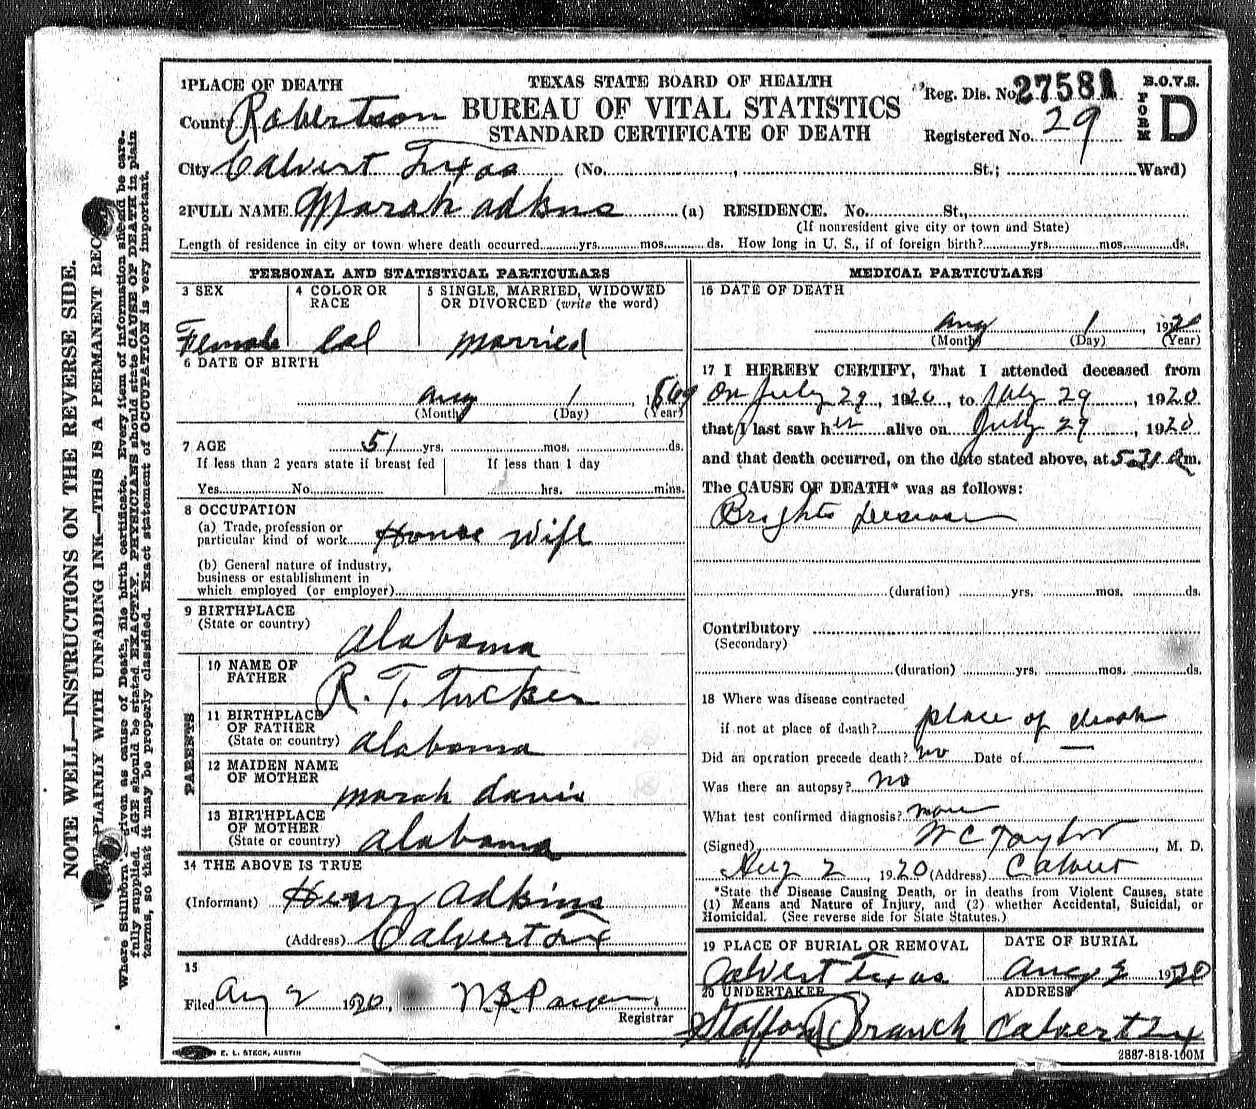 TEXAS STATE BOARD OF HEALTH
BUREAU OF VITAL STATISTICS
STANDARD CERTIFICATE OF DEATH
Reg. Dis. No. 27581
Registered No. 29
B.O.V.S.
FORM D
1 PLACE OF DEATH
County Robertson
City Calvert Texas (No. , St.; Ward)
2 FULL NAME Marah Adkins (a) RESIDENCE. No. St.,
(If nonresident give city or town and State)
Length of residence in city or town where death occurred yrs. mos. ds. How long in U. S., if of foreign birth? yrs. mos. ds.
PERSONAL AND STATISTICAL PARTICULARS
3 SEX
Female
4 COLOR OR RACE
Col
5 SINGLE, MARRIED, WIDOWED
OR DIVORCED (write the word)
Married
6 DATE OF BIRTH
Aug 1, 1869
(Month) (Day) (Year)
7 AGE 51 yrs. mos. ds.
If less than 2 years state if breast fed
Yes No
If less than 1 day
hrs. mins.
8 OCCUPATION
(a) Trade, profession or
particular kind of work House Wife
(b) General nature of industry,
business or establishment in
which employed (or employer)
9 BIRTHPLACE
(State or country) Alabama
PARENTS
10 NAME OF
FATHER R. T. Tucker
11 BIRTHPLACE
OF FATHER
(State or country) Alabama
12 MAIDEN NAME
OF MOTHER Marah Davis
13 BIRTHPLACE
OF MOTHER
(State or country) Alabama
14 THE ABOVE IS TRUE
(Informant) Henry Adkins
(Address) Calvert Tex
15
Filed Aug 2 1920
Registrar
E. L. STECK, AUSTIN
MEDICAL PARTICULARS
16 DATE OF DEATH
Aug 1, 1920
(Month) (Day) (Year)
17 I HEREBY CERTIFY, That I attended deceased from
on July 29, 1920, to July 29, 1920
that I last saw her alive on July 29, 1920
and that death occurred, on the date stated above, at am.
The CAUSE OF DEATH* was as follows:
Brights disease
(duration) yrs. mos. ds.
Contributory
(Secondary)
(duration) yrs. mos. ds.
18 Where was disease contracted
if not at place of death? place of death
Did an operation precede death? no Date of —
Was there an autopsy? no
What test confirmed diagnosis?
(Signed) W C Taylor, M. D.
Aug 2, 1920 (Address) Calvert
*State the Disease Causing Death, or in deaths from Violent Causes, state
(1) Means and Nature of Injury, and (2) whether Accidental, Suicidal, or
Homicidal. (See reverse side for State Statutes.)
19 PLACE OF BURIAL OR REMOVAL
Calvert Texas
DATE OF BURIAL
Aug 2 1920
20 UNDERTAKER
Branch
ADDRESS
Calvert Tex
2887-818-100M
NOTE WELL—INSTRUCTIONS ON THE REVERSE SIDE.
PLAINLY WITH UNFADING INK—THIS IS A PERMANENT
Where Stillborn given as cause of Death, file birth certificate. Every item of information should be care-
fully supplied. AGE should be stated EXACTLY. PHYSICIANS should state CAUSE OF DEATH in plain
terms, so that it may be properly classified. Exact statement of OCCUPATION is very important.